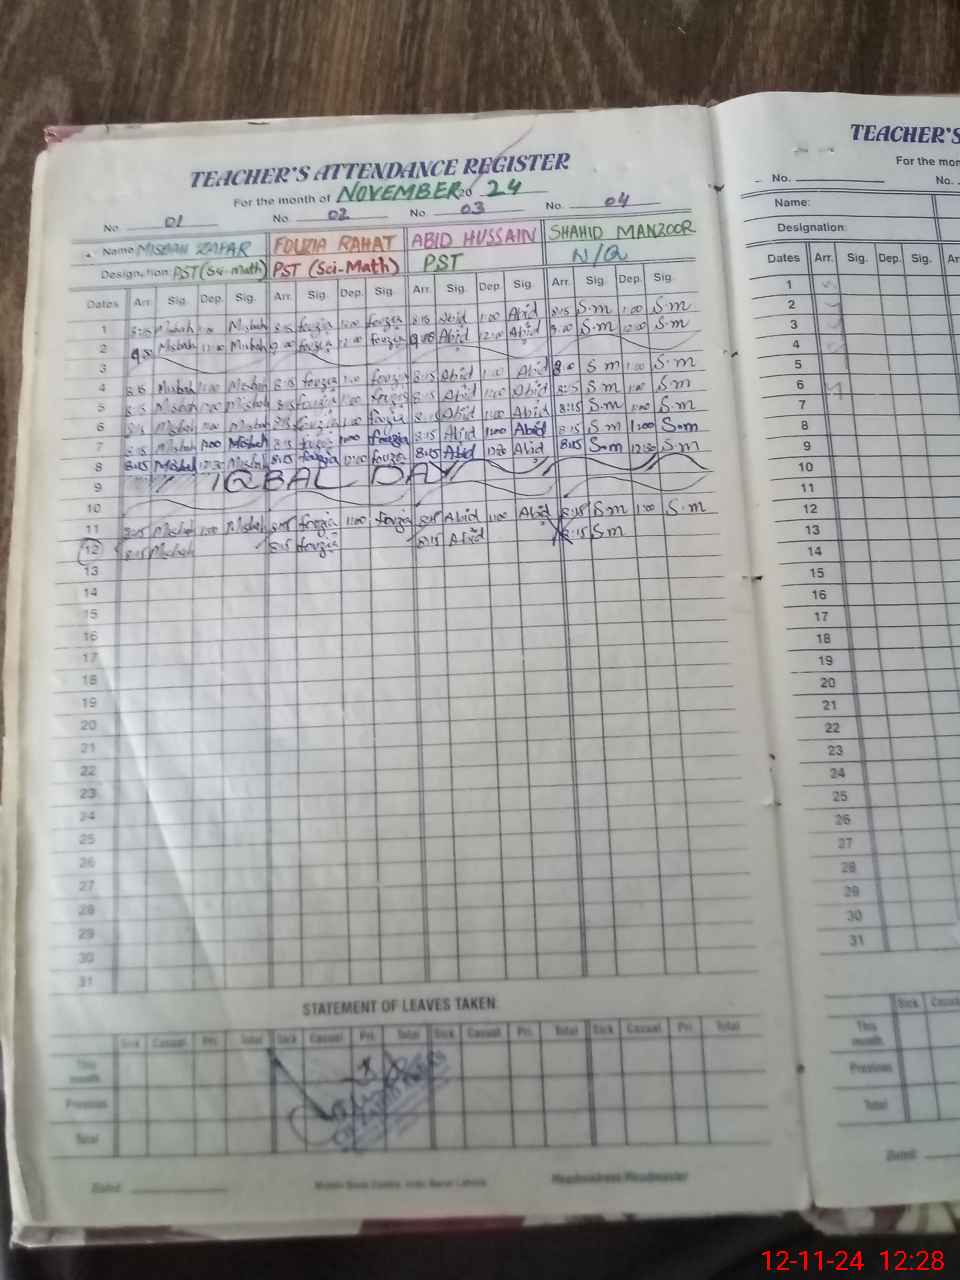 TEACHER'S ATTENDANCE REGISTER
For the month of NOVEMBER 20 24
No. 01 No. 02 No. 03 No. 04
Name MISBAH ZAFAR FOUZIA RAHAT ABID HUSSAIN SHAHID MANZOOR
Designation PST (Sci-math) PST (Sci-Math) PST N/Q
Dates Arr. Sig. Dep. Sig. Arr. Sig. Dep. Sig. Arr. Sig. Dep. Sig. Arr. Sig. Dep. Sig.
1 8:15 Misbah 1:00 Misbah 8:15 fouzia 1:00 fouzia 8:15 Abid 1:00 Abid 8:15 S.m 1:00 S.m
2 9:00 Misbah 12:00 Misbah 9:00 fouzia 12:00 fouzia 9:00 Abid 12:00 Abid 9:00 S.m 12:00 S.m
3
4 8:15 Misbah 1:00 Misbah 8:15 fouzia 1:00 fouzia 8:15 Abid 1:00 Abid S m 1:00 S.m
5 8:15 Misbah 1:00 Misbah 8:15 fouzia 1:00 fouzia 8:15 Abid 1:00 Abid 8:15 S m 1:00 S.m
6 8:15 Misbah 1:00 Misbah 8:15 fouzia 1:00 fouzia 8:15 Abid 1:00 Abid 8:15 S.m 1:00 S.m
7 8:15 Misbah 1:00 Misbah 8:15 fouzia 1:00 fouzia 8:15 Abid 1:00 Abid 8:15 S m 1:00 S.m
8 8:15 Misbah 12:30 Misbah 8:15 fouzia fouzia 8:15 Abid 12:30 Abid 8:15 S.m 12:30 S m
9 IQBAL DAY
10
11 8:15 Misbah 1:00 Misbah 8:15 fouzia 1:00 fouzia 8:15 Abid 1:00 Abid 8:15 S m 1:00 S.m
12 8:15 Misbah 8:15 fouzia 8:15 Abid 8:15 S m
13
14
15
16
17
18
19
20
21
22
23
24
25
26
27
28
29
30
31
STATEMENT OF LEAVES TAKEN
Sick Casual Pri. Total Sick Casual Pri. Total Sick Casual Pri. Total Sick Casual Pri. Total
This month
Previous
Total
Dated
Headmistress/Headmaster
TEACHER'S
For the mon
No. No.
Name:
Designation:
Dates Arr. Sig. Dep. Sig. Ar
1
2
3
4
5
6
7
8
9
10
11
12
13
14
15
16
17
18
19
20
21
22
23
24
25
26
27
28
29
30
31
Sick Casual
This month
Previous
Total
Dated
12-11-24 12:28